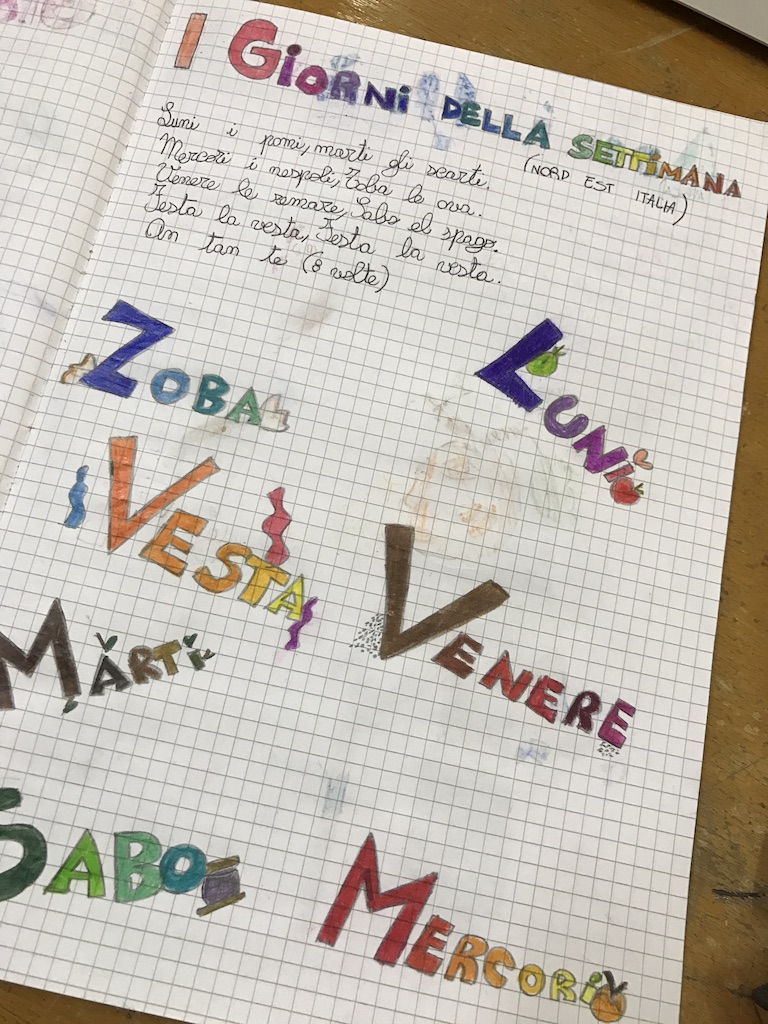 I GIORNI DELLA SETTIMANA
(NORD EST ITALIA)
Luni i pomi, marti gli scarti.
Mercori i nespoli, Zoba le ova.
Venere le semare, Sabo el spago.
Festa la vesta, Festa la vesta.
An tan te (8 volte)
ZOBA
LUNI
VESTA
VENERE
MARTI
SABO
MERCORI